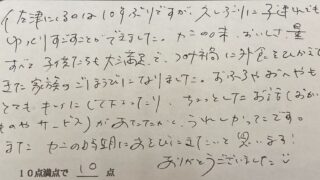 (唐津にくるのは10年ぶりですが、久しぶりに子連れでも
ゆっくりすごすことができました。カニの本、おいしさ量
すべて 子供たちも大満足で、コロナ禍に外食をひかえて
きた家族のごほうびになりました。おふろやおへやも
とてもキレイにして下さっており、ちょっとしたお話(おかし
ものやサービス)があたたかく、うれしかったです。
また カニの時期にあそびにきたいと思います!
ありがとうございました
10点満点で 10 点